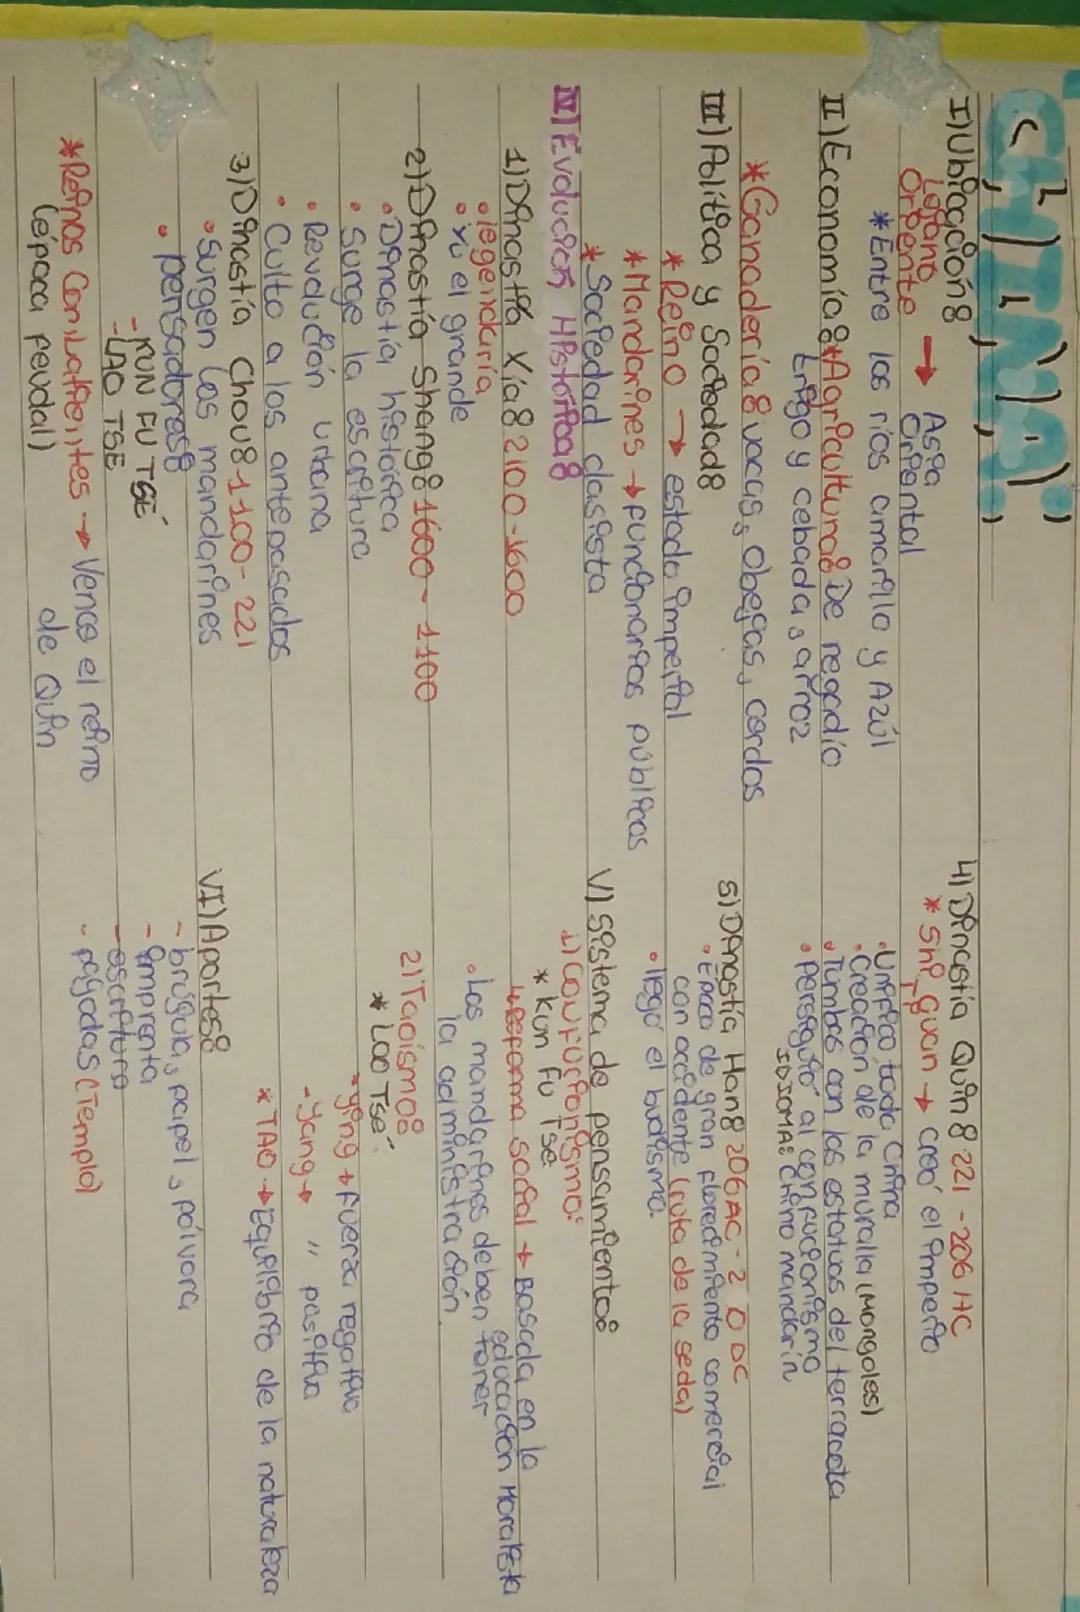 CHINA:
I) Ubicación:
Lejano
Oriente → Asia
Oriental
* Entre los ríos amarillo y Azúl
II) Economía: * Agricultura: De regadío
trigo y cebada, arroz
* Ganadería: vacas, obejas, cerdos
III) Política y Sociedad:
* Reino → estado imperial
* Mandarines → funcionarios públicos
* Sociedad clasista
IV) Evolución Histórica:
1) Dinastía Xia: 2100-1600
• legendaria
• Yu el grande
2) Dinastía Shang: 1600-1100
• Dinastía histórica
• Surge la escritura
• Revolución urbana
• Culto a los antepasados
3) Dinastía Chou: 1100-221
• Surgen los mandarines
• pensadores:
- KUN FU TSÉ
- LAO TSE
* Reinos Combatientes → Vence el reino
(época feudal) de Quin
4) Dinastía Quin: 221-206 AC
* Shi-guan → creó el imperio
• Unifica toda China
• Creación de la muralla (Mongoles)
• Tumbas con las estatuas del terracota
• Persiguió al confucionismo
IDIOMA: Chino mandarín
5) Dinastía Han: 206 AC - 2 0 DC
• Época de gran florecimiento comercial
con occidente (ruta de la seda)
• llegó el budismo
V) Sistema de pensamiento:
1) Confucionismo:
* Kun Fu Tse
↳ Reforma social → Basada en la
educación Moralista
• Los mandarines deben tener
la administración
2) Taoísmo:
* Lao Tsé:
- ying → fuerza negativa
- yang → " positiva
* TAO → Equilibrio de la naturaleza
VI) Aportes:
- brújula, papel, pólvora
- imprenta
- escritura
- pagodas (Templo)